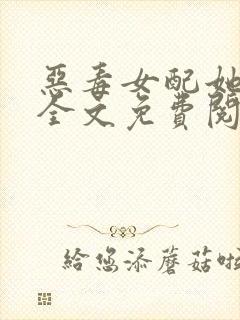 惡毒女配她
全文免費閱
給您添蘑菇啦